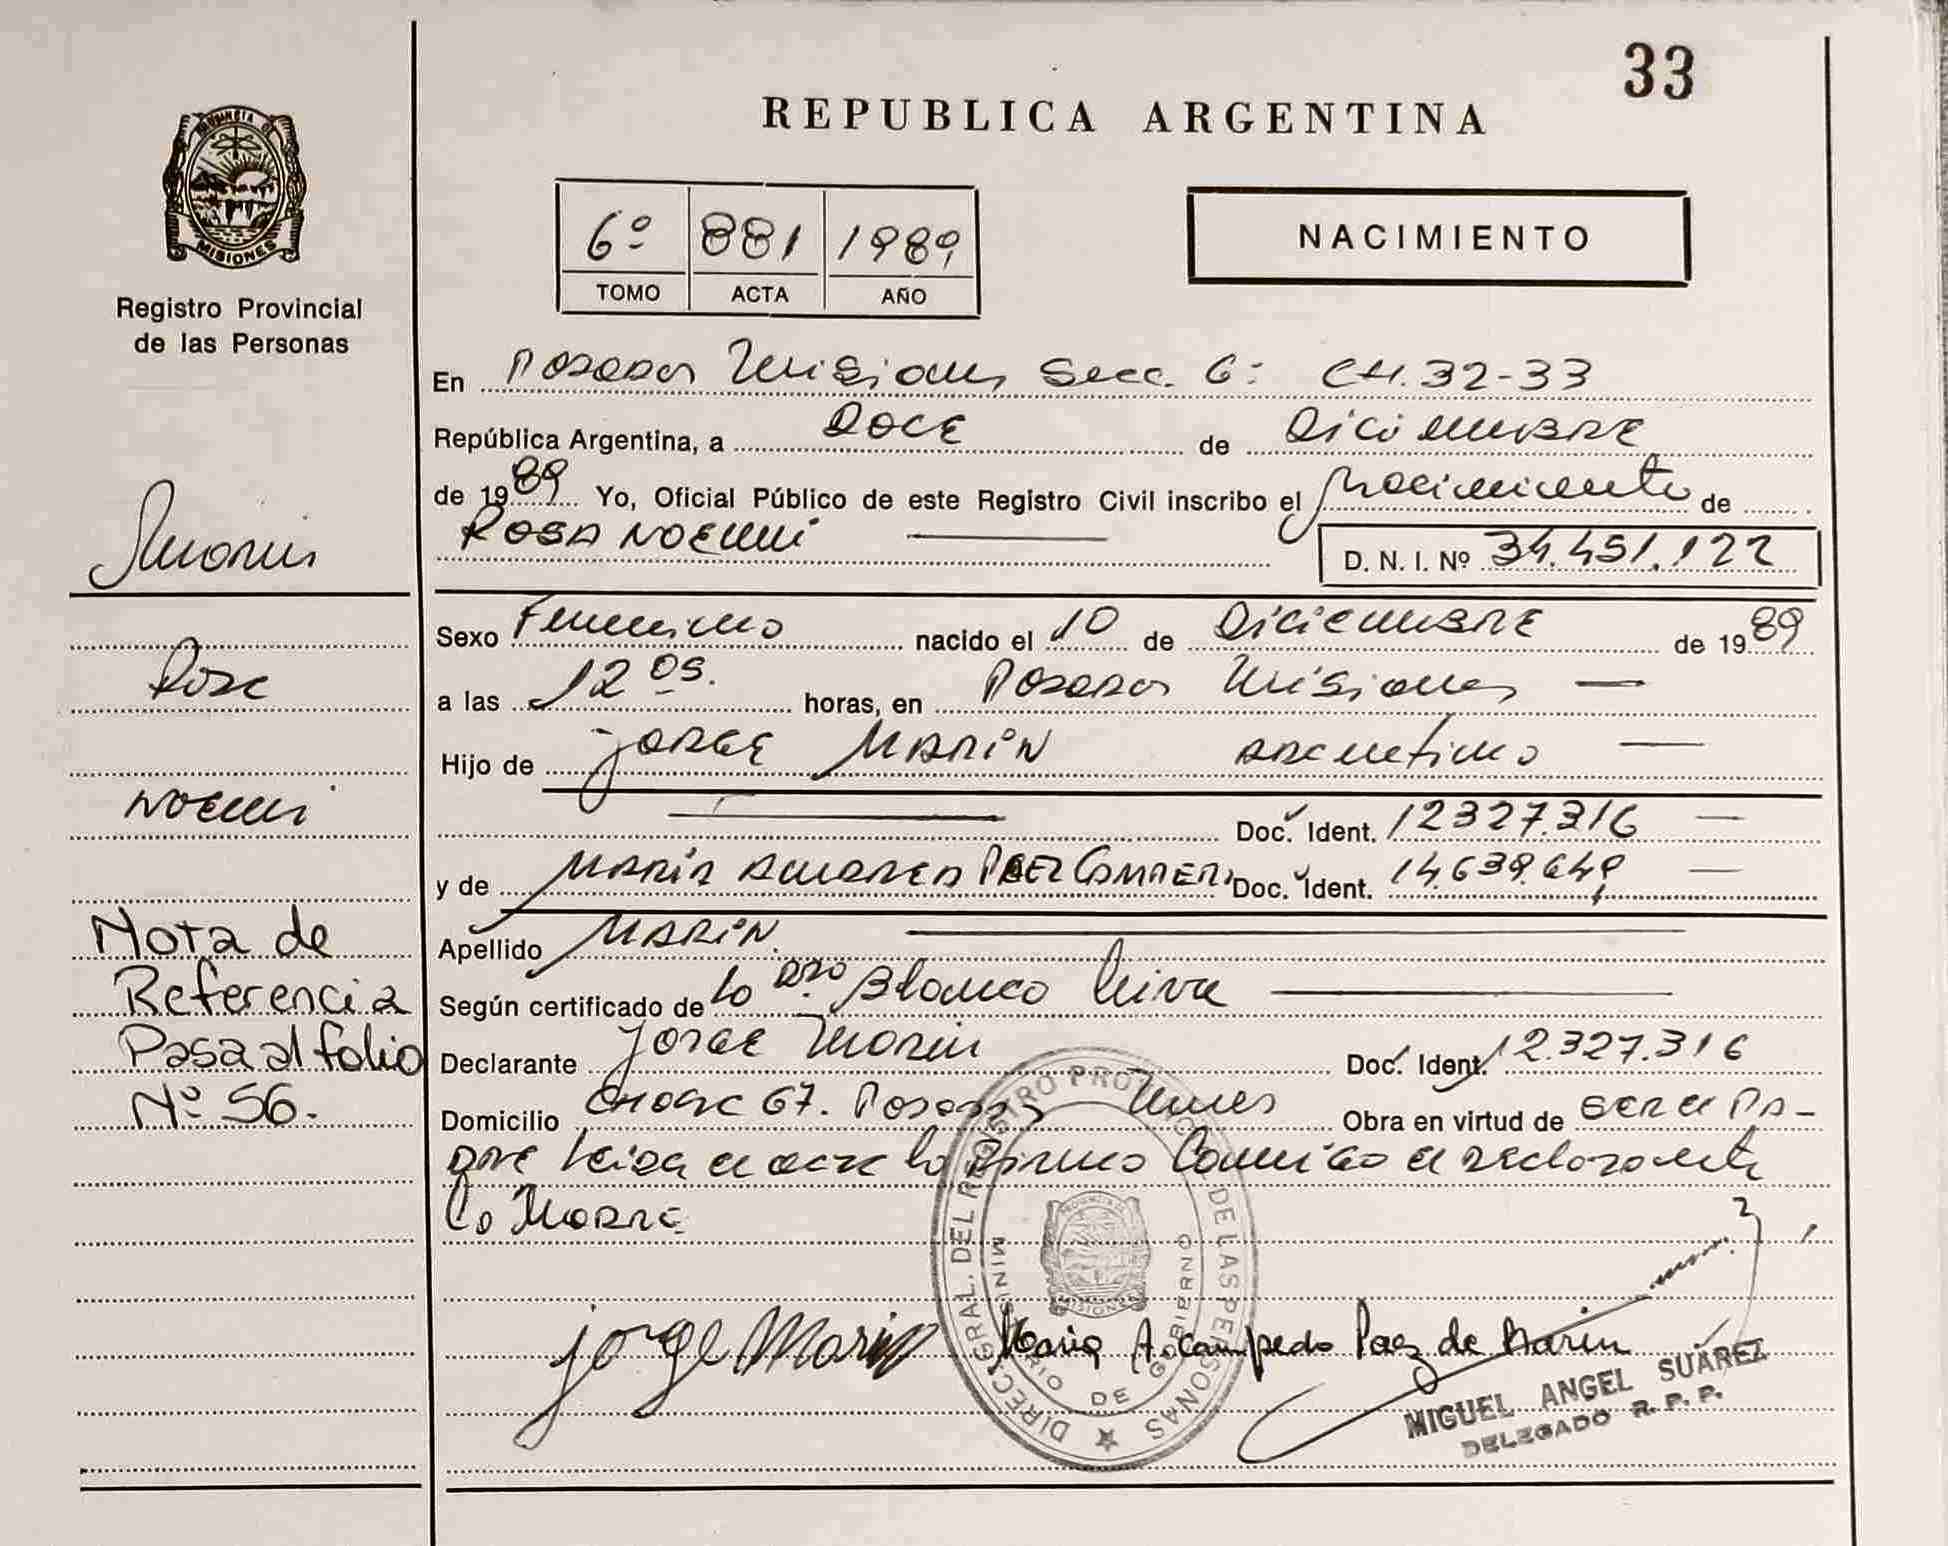 33
REPUBLICA ARGENTINA
PROVINCIA DE
MISIONES
Registro Provincial
de las Personas
6º 881 1989
TOMO ACTA AÑO
NACIMIENTO
En Posadas Misiones Secc. 6: CH. 32-33
República Argentina, a DOCE de Diciembre
de 1989 Yo, Oficial Público de este Registro Civil inscribo el Nacimiento de
ROSA NOEMI
D. N. I. Nº 34.451.122
Sexo Femenino nacido el 10 de Diciembre de 1989
a las 12 os. horas, en Posadas Misiones
Hijo de Jorge Marín argentino
Doc. Ident. 12327.316
y de María Amarea Paez Doc. Ident. 14.639.649
Apellido Marín
Según certificado de la Dra Blanco
Declarante Jorge Marin Doc. Ident. 12.327.316
Domicilio 67. Posadas Mnes Obra en virtud de ser el pa-
dre leida el acta la firma Conmigo el declarante
la Madre
Marin
Rosa
Noemi
Nota de
Referencia
Pasa al folio
Nº 56.
Jorge Marin
Maria A. Paez de Marin
DIREC. GRAL. DEL REGISTRO PROVINCIAL DE LAS PERSONAS
MINISTERIO DE GOBIERNO
MISIONES
MIGUEL ANGEL SUÁREZ
DELEGADO R. P. P.